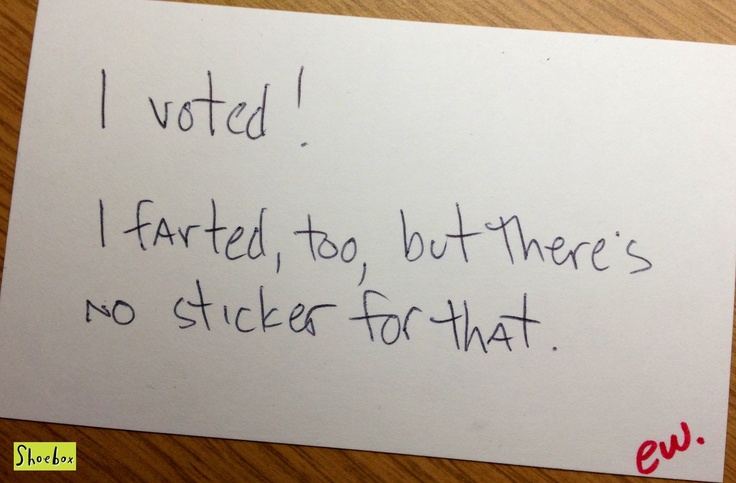 I voted!
I farted, too, but there's
no sticker for that.
ew.
Shoebox